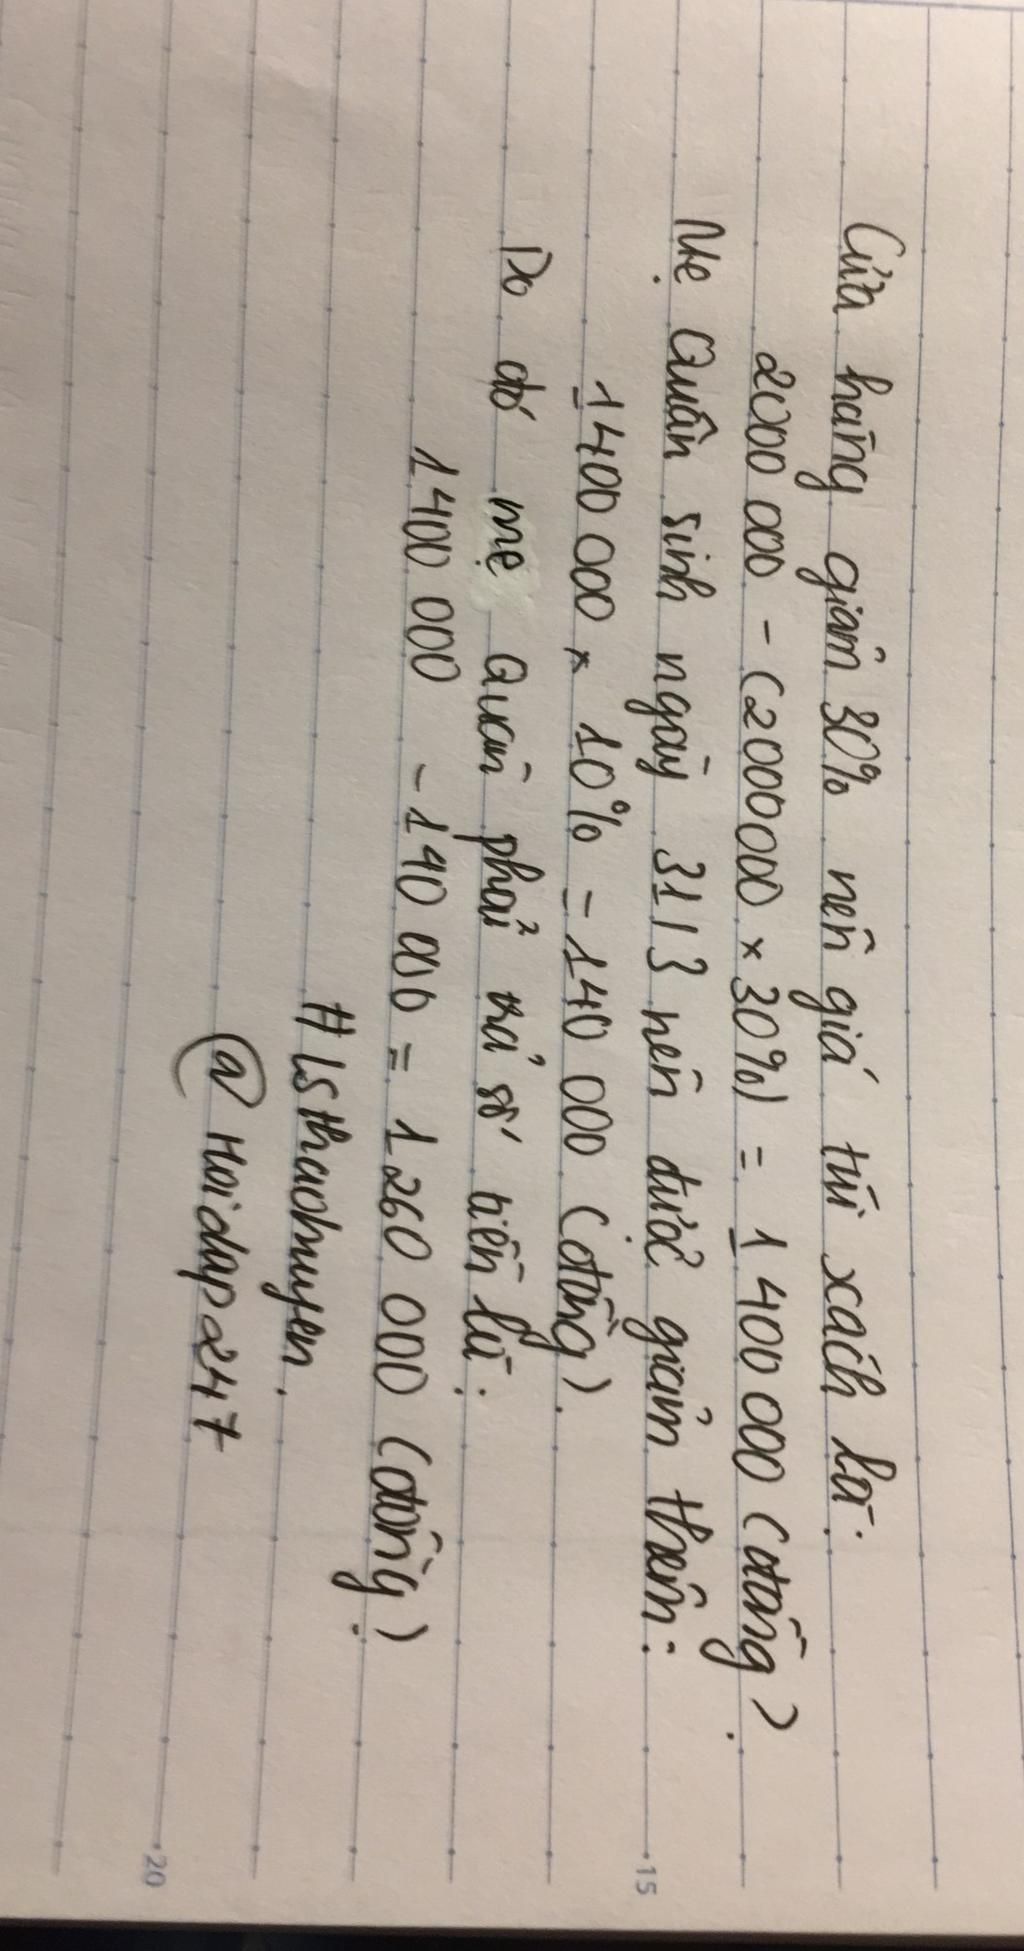 Cửa hàng giảm 30% nên giá túi xách là:
2000 000 - (2000000 × 30%) = 1 400 000 (đồng)
Mẹ Quân sinh ngày 31/3 nên được giảm thêm:
1400 000 × 10% = 140 000 (đồng).
Do đó mẹ Quân phải trả số tiền là:
1400 000 - 140 000 = 1 260 000 (đồng)
# lsthaohuyen.
@ Hoidap247
15
20